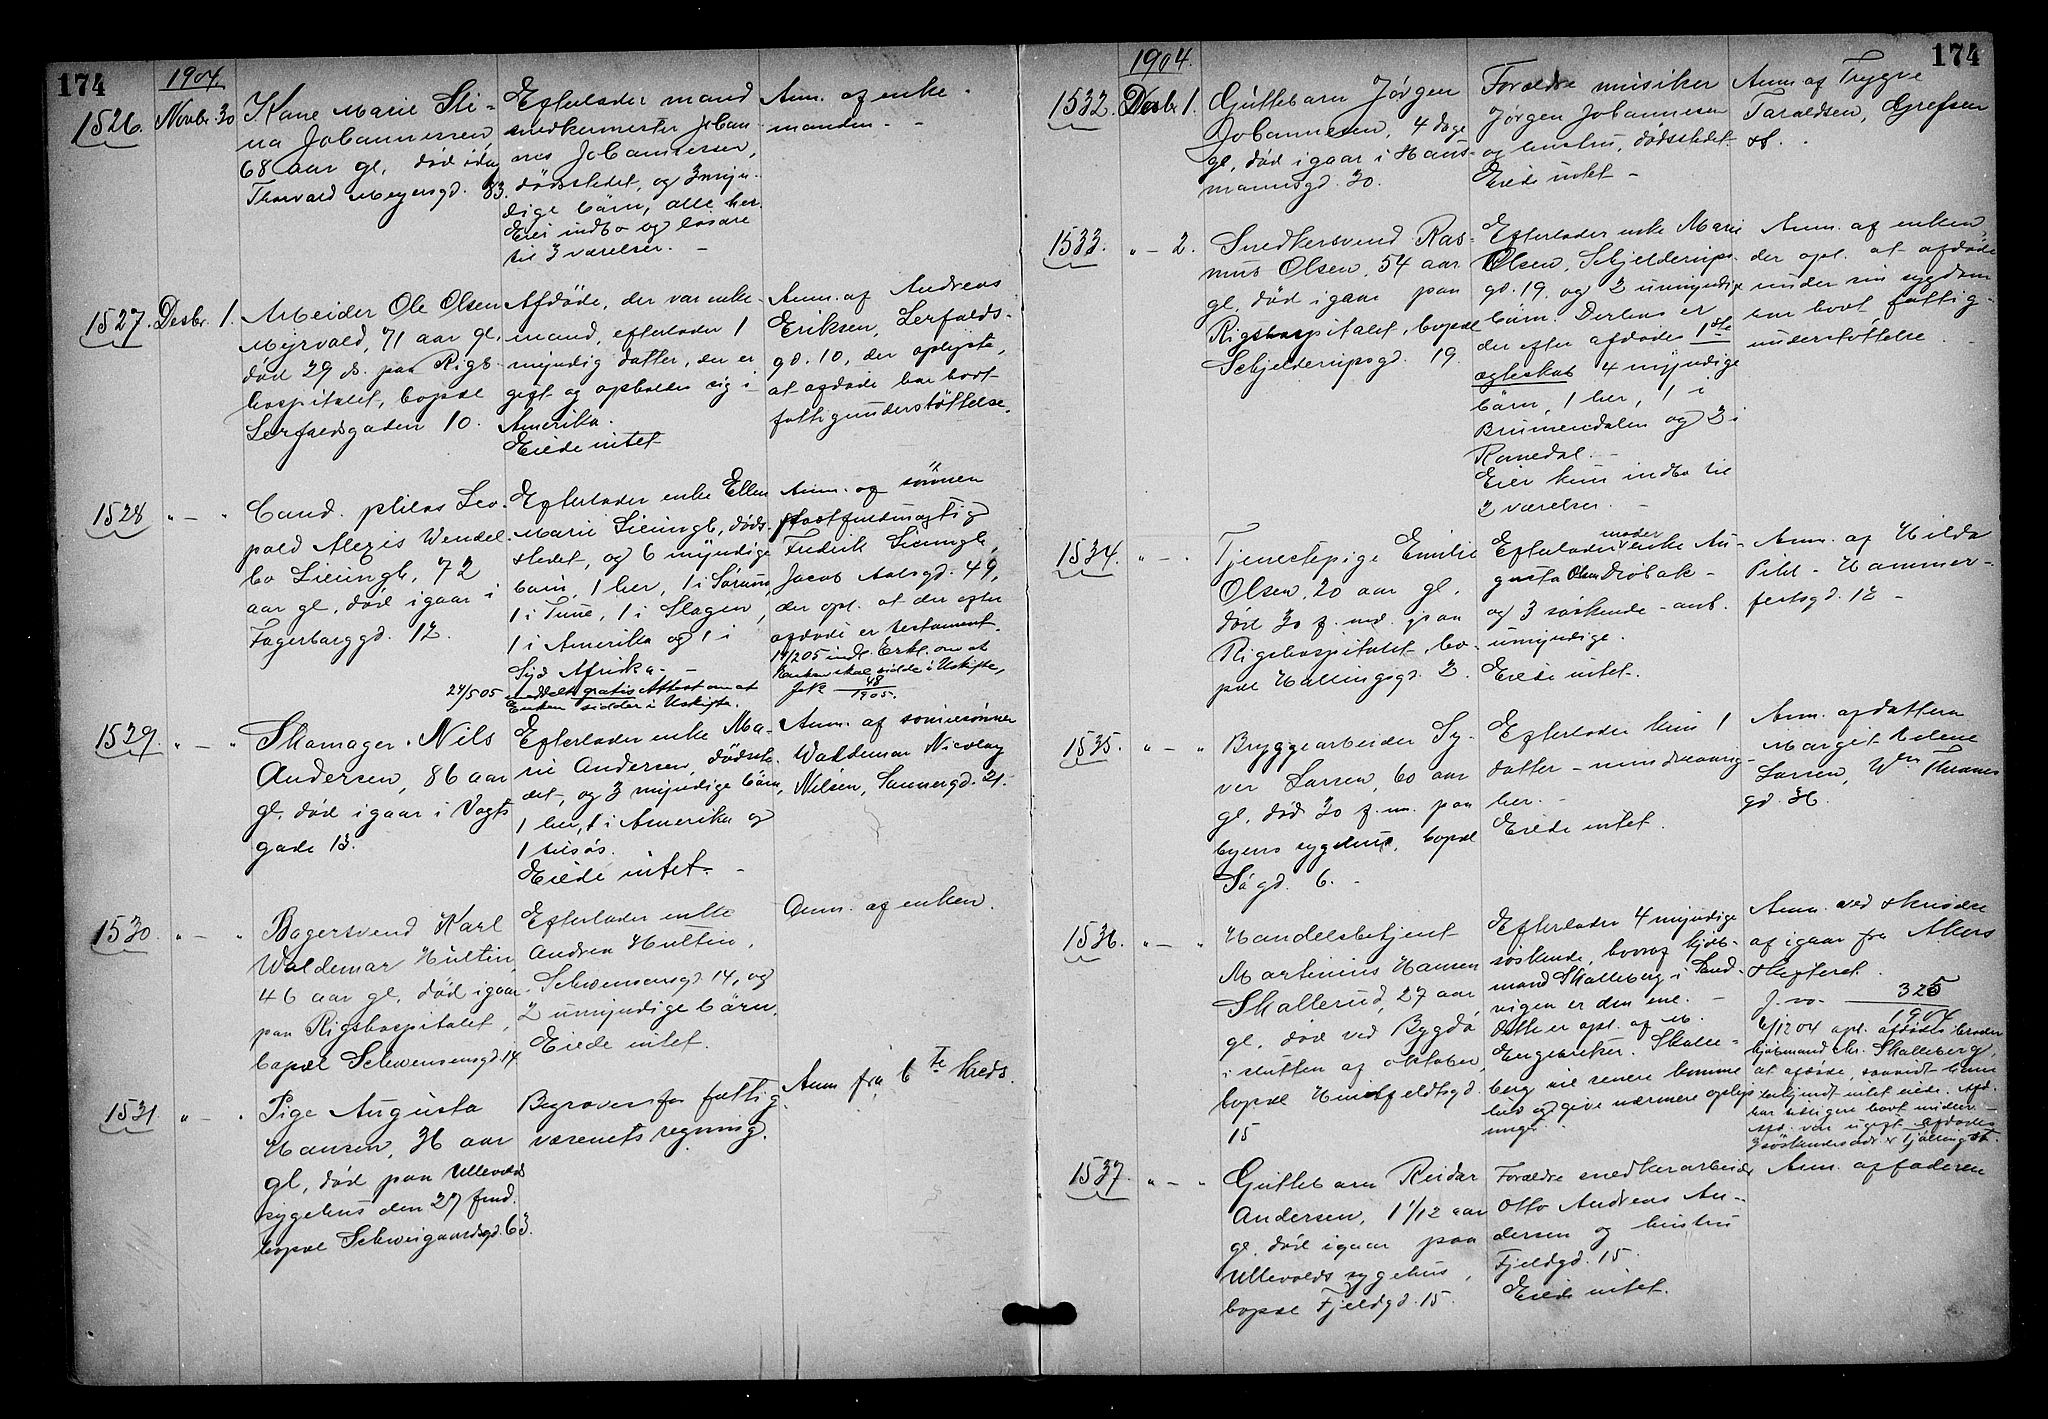 174
1904.
1526. Novbr. 30
Kone Marie Sti-
na Johannessen
68 aar gl, død idag
Thorvald Meyersgd. 83.
Efterlader mand
snedkermester Johan-
nes Johannessen,
dødsstedet, og 3 myn-
dige børn, alle her.
Eier indbo og løsøre
til 3 værelser. -
Anm. af enke-
manden. -
1527. Desbr. 1.
Arbeider Ole Olsen
Myrvold, 71 aar gl.
død 29 ds. paa Rigs-
hospitalet, bopæl
Lerfaldsgaden 10.
Afdøde, der var enke-
mand, efterlader 1
myndig datter, der er
gift og opholder sig i
Amerika.
Eiede intet
Anm. af Andreas
Eriksen, Lerfalds-
gd. 10, der oplyste,
at afdøde har havt
fattigunderstøttelse.
1528 " - "
Cand. philos Leo-
pold Alexis Wendel-
bo Lieungh, 72
aar gl, død igaar i
Fagerborggd. 12.
Efterlader enke Ellen
Marie Lieungh, døds-
stedet, og 6 myndige
barn, 1 her, 1 i Sørum,
1 i Tune, 1 i Slagen,
1 i Amerika og 1 i
Syd Afrika. -
24/5 05 meddelt gratis Attest om at
Enken sidder i Uskifte.
Anm. af sønnen
postfuldmægtig
Fredrik Lieungh,
Jacob Aalsgd. 49,
der opl. at der efter
afdøde er testament.
14/2 05 indl. Erkl. om at
Enken skal sidde i Uskifte,
Jk 48/1905.
1529. " - "
Skomager Nils
Andersen, 86 aar
gl, død igaar i Vogts
gade 13.
Efterlader enke Ma-
rie Andersen, dødste-
det, og 3 myndige børn,
1 her, 1 i Amerika og
1 tilsøs.
Eiede intet. -
Anm. af sønnesønnen
Waldemar Nicolay
Nilsen, Sannergd. 21.
1530. " - "
Bagersvend Karl
Waldemar Hultin,
46 aar gl, død igaar
paa Rigshospitalet,
bopæl Schwensensgd. 14
Efterlader enke
Andrea Hultin,
Schwensensgd 14, og
2 umyndige børn.
Eiede intet.
Anm. af enken.
1531 " - "
Pige Augusta
Hansen, 36 aar
gl, død paa Ullevold
sygehus den 27 f.md.
bopæl Schweigaardsgd. 63.
Begraves for fattig-
væsenets regning.
Anm fra 6te kreds.
174
1904.
1532. Desbr 1.
Guttebarn Jørgen
Johannesen, 4 dage
gl, død igaar i Haus-
mannsgd. 30.
Forældre musiker
Jørgen Johannesen
og hustru, dødsstedet
Eiede intet -
Anm af Trygve
Taraldsen, Grefsen
st.
1533. " - 2.
Snedkersvend Ras-
mus Olsen, 54 aar
gl, død igaar paa
Rigshospitalet, bopæl
Schjelderupsgd. 19.
Efterlader enke Marie
Olsen, Schjelderups-
gd. 19. og 2 umyndige
børn. Derhos er
der efter afdødes 1ste
ægteskab 4 myndige
børn, 1 her, 1 i
Brumendalen og 2 i
Romedal. -
Eier kun indbo til
2 værelser. -
Anm. af enken,
der opl. at afdøde
under sin sygdom
har havt fattig-
understøttelse.
1534. " - "
Tjenestepige Emilie
Olsen, 20 aar gl,
død 30 f. md. paa
Rigshospitalet, bo-
pæl Hallingsgd. 2.
Efterlader moder enke Au-
gusta Olsen Drøbak -
og 3 søskende - ant.
umyndige.
Eiede intet.
Anm. af Hilda
Pihl - Hammer-
festsgd. 12 -
1535. " - "
Bryggearbeider Sy-
ver Larsen, 60 aar
gl, død 30 f. m. paa
byens sygehus, bopæl
Søgd. 6. -
Efterlader kun 1
datter - mindreaarig -
her. -
Eiede intet.
Anm. af datteren
Margit Helene
Larsen, Wm Thranes
gd. 36.
1536. " - "
Handelsbetjent
Martinius Hansen
Skallerud, 27 aar
gl, død ved Bygdø
i slutten af oktober,
bopæl Huitfeldtsgd.
15
Efterlader 4 myndige
søskende, hvoraf kjøb-
mand Skalleberg i Sand-
vigen er den ene. -
Dette er opl. af m.
Engebriksen. Skalle-
berg vil senere komme
hid og give nærmere oplys
ninger.
Anm. ved skrivelse
af igaar fra Akers
skifteret.
J. no. 325/1904
6/12 04 opl. afdødes broder
kjøbmand Chr. Skalleberg,
at afdøde, saavidt ham
bekjendt intet eiede. Afd.
har tidligere havt
Afd. var ugift. afdødes
3 søskendes adr. er Tjølling st.
1537. " - "
Guttebarn Reidar
Andersen, 1 1/12 aar
gl. død igaar paa
Ullevolds sygehus,
bopæl Fjeldgd. 15.
Forældre snedkerarbeider
Otto Andreas An-
dersen og hustru
Fjeldgd. 15.
Eiede intet.
Anm. af faderen